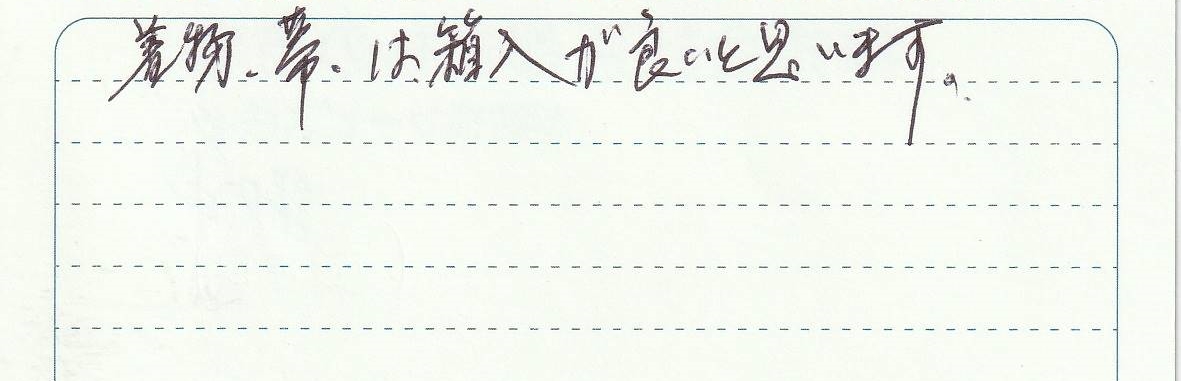 着物、帯、は箱入が良いと思います。